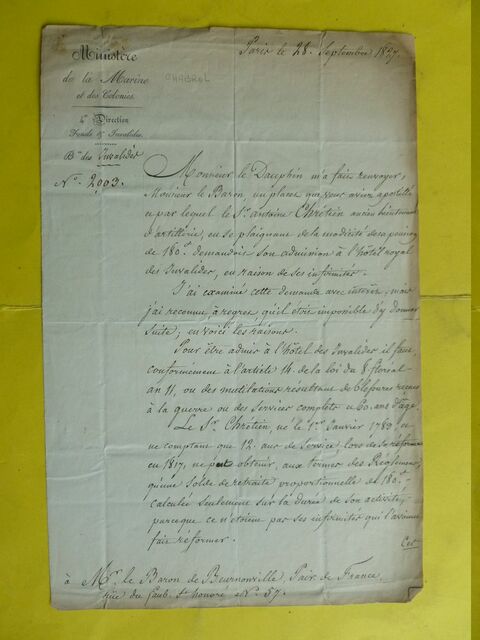 Paris le 28. Septembre 1827.
Ministère
de la Marine
et des Colonies.
CHABROL
4e Direction
Fonds & Invalides.
B.au des Invalides
N.o 2003.
Monsieur le Dauphin m'a fait renvoyer,
Monsieur le Baron, un placet que vous avez apostillé
par lequel le Sr. antoine Chrétien ancien lieutenant
d'artillerie, en se plaignant de la modicité de sa pension
de 180.f demandait son admission à l'hôtel royal
des Invalides, en raison de ses infirmités.
J'ai examiné cette demande avec intérêt, mais
j'ai reconnu, à regret, qu'il était impossible d'y donner
suite; en voici les raisons.
Pour être admis à l'hôtel des Invalides il faut,
conformément à l'article 14. de la loi du 8 floréal
an 11, ou des mutilations résultant de blessures reçues
à la guerre ou des Services complets et 60. ans d'âge
Le Sr. Chrétien né le 1.er Janvier 1780 et
ne comptant que 12. ans de Service, lors de sa réforme
en 1817, ne put obtenir, aux termes des Réglemens,
qu'une solde de retraite proportionnelle de 180.f
calculée seulement sur la durée de son activité,
parceque ce n'étoient pas ses infirmités qui l'avaient
fait réformer.
Cet
à Mr. le Baron de Beurnonville, Pair de France,
rue du faub. St. honoré No. 57.